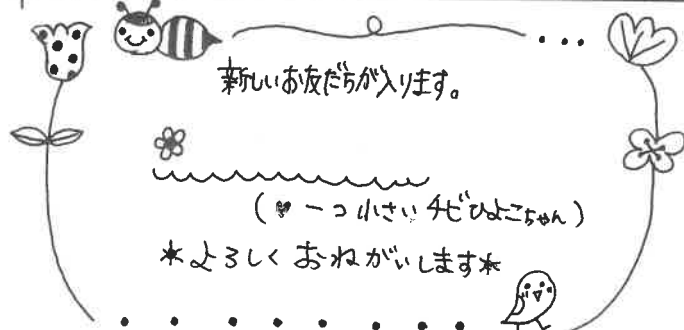 新しいお友だちが入ります。
(♥一つ小さいチビひよこちゃん)
*よろしくおねがいします*